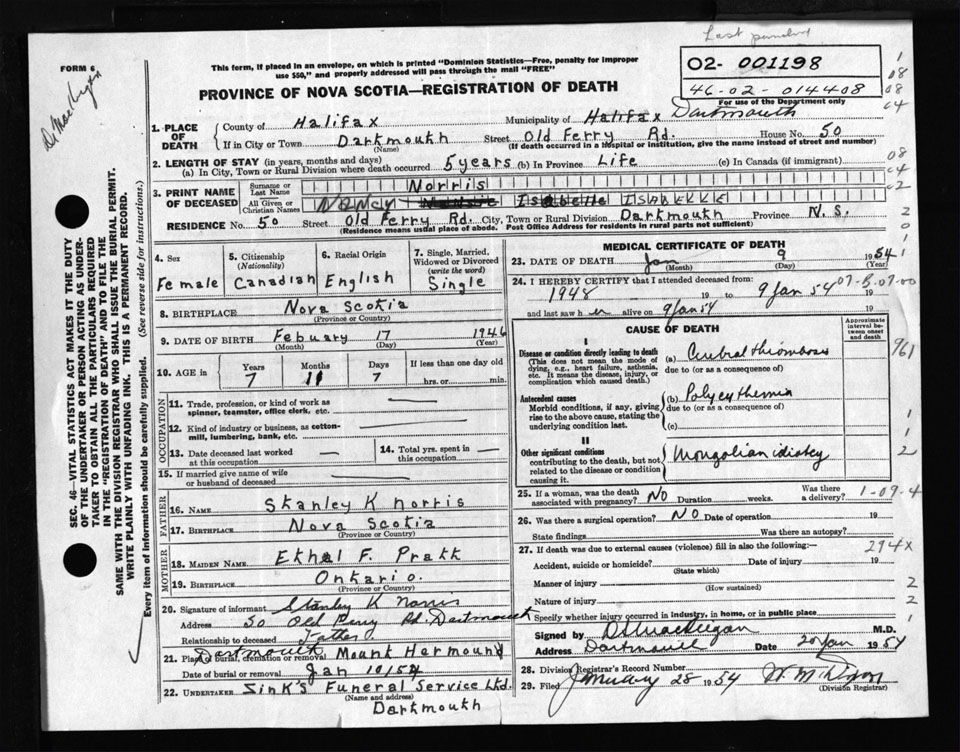 Last
FORM 6
This form, if placed in an envelope, on which is printed "Dominion Statistics—Free, penalty for improper
use $50," and properly addressed will pass through the mail "FREE"
PROVINCE OF NOVA SCOTIA—REGISTRATION OF DEATH
02- 001198
46-02-014408
For use of the Department only
1. PLACE OF DEATH
County of Halifax Municipality of Halifax Dartmouth
If in City or Town Dartmouth Street Old Ferry Rd. House No. 50
(Name) (If death occurred in a hospital or institution, give the name instead of street and number)
2. LENGTH OF STAY (in years, months and days)
(a) In City, Town or Rural Division where death occurred 5 years (b) In Province Life (c) In Canada (if immigrant)
3. PRINT NAME OF DECEASED
Surname or Last Name Norris
All Given or Christian Names NANCY Isabelle ISABELLE
RESIDENCE No. 50 Street Old Ferry Rd. City, Town or Rural Division Dartmouth Province N.S.
(Residence means usual place of abode. Post Office Address for residents in rural parts not sufficient)
4. Sex
Female
5. Citizenship (Nationality)
Canadian
6. Racial Origin
English
7. Single, Married, Widowed or Divorced (write the word)
Single
8. BIRTHPLACE Nova Scotia
(Province or Country)
9. DATE OF BIRTH Febuary 17 1946
(Month) (Day) (Year)
10. AGE in Years Months Days If less than one day old
7 11 7 hrs. or min.
OCCUPATION
11. Trade, profession, or kind of work as spinner, teamster, office clerk, etc. —
12. Kind of industry or business, as cotton-mill, lumbering, bank, etc. —
13. Date deceased last worked at this occupation —
14. Total yrs. spent in this occupation —
15. If married give name of wife or husband of deceased
FATHER
16. NAME Stanley K Norris
17. BIRTHPLACE Nova Scotia
(Province or Country)
MOTHER
18. MAIDEN NAME Ethal F. Pratt
19. BIRTHPLACE Ontario.
(Province or Country)
20. Signature of informant Stanley K Norris
Address 50 Old Ferry Rd. Dartmouth
Relationship to deceased Father
21. Place of burial, cremation or removal Dartmouth Mount Hermound
Date of burial or removal Jan 10/54
22. UNDERTAKER Zink's Funeral Service Ltd.
(Name and address)
Dartmouth
MEDICAL CERTIFICATE OF DEATH
23. DATE OF DEATH Jan 9 1954
(Month) (Day) (Year)
24. I HEREBY CERTIFY that I attended deceased from: 07-5-07-00
1948 19 to 9 Jan 54 19
and last saw her alive on 9 Jan 54 19
CAUSE OF DEATH
Approximate interval between onset and death
I
Disease or condition directly leading to death
(This does not mean the mode of dying, e.g., heart failure, asthenia, etc. It means the disease, injury, or complication which caused death.)
(a) Cerebral thrombosis
due to (or as a consequence of)
Antecedent causes
Morbid conditions, if any, giving rise to the above cause, stating the underlying condition last.
(b) Polycythemia
due to (or as a consequence of)
(c)
II
Other significant conditions
contributing to the death, but not related to the disease or condition causing it.
Mongolian idiotcy
25. If a woman, was the death associated with pregnancy? NO Duration weeks. Was there a delivery? 1-09-4
26. Was there a surgical operation? NO Date of operation 19
State findings Was there an autopsy?
27. If death was due to external causes (violence) fill in also the following:— 294x
Accident, suicide or homicide? Date of injury 19
(State which)
Manner of injury
(How sustained)
Nature of injury
Specify whether injury occurred in industry, in home, or in public place
Signed by M.D.
Address Dartmouth Date 20 Jan 1954
28. Division Registrar's Record Number
29. Filed January 28 1954
(Division Registrar)
SEC. 46—VITAL STATISTICS ACT MAKES IT THE DUTY
OF THE UNDERTAKER OR PERSON ACTING AS UNDER-
TAKER TO OBTAIN ALL THE PARTICULARS REQUIRED
IN THE "REGISTRATION OF DEATH" AND TO FILE THE
SAME WITH THE DIVISION REGISTRAR WHO SHALL ISSUE THE BURIAL PERMIT.
WRITE PLAINLY WITH UNFADING INK. THIS IS A PERMANENT RECORD.
Every item of information should be carefully supplied. (See reverse side for instructions.)
1
08
08
04
08
04
02
2
0
1
961
1
1
2
2
2